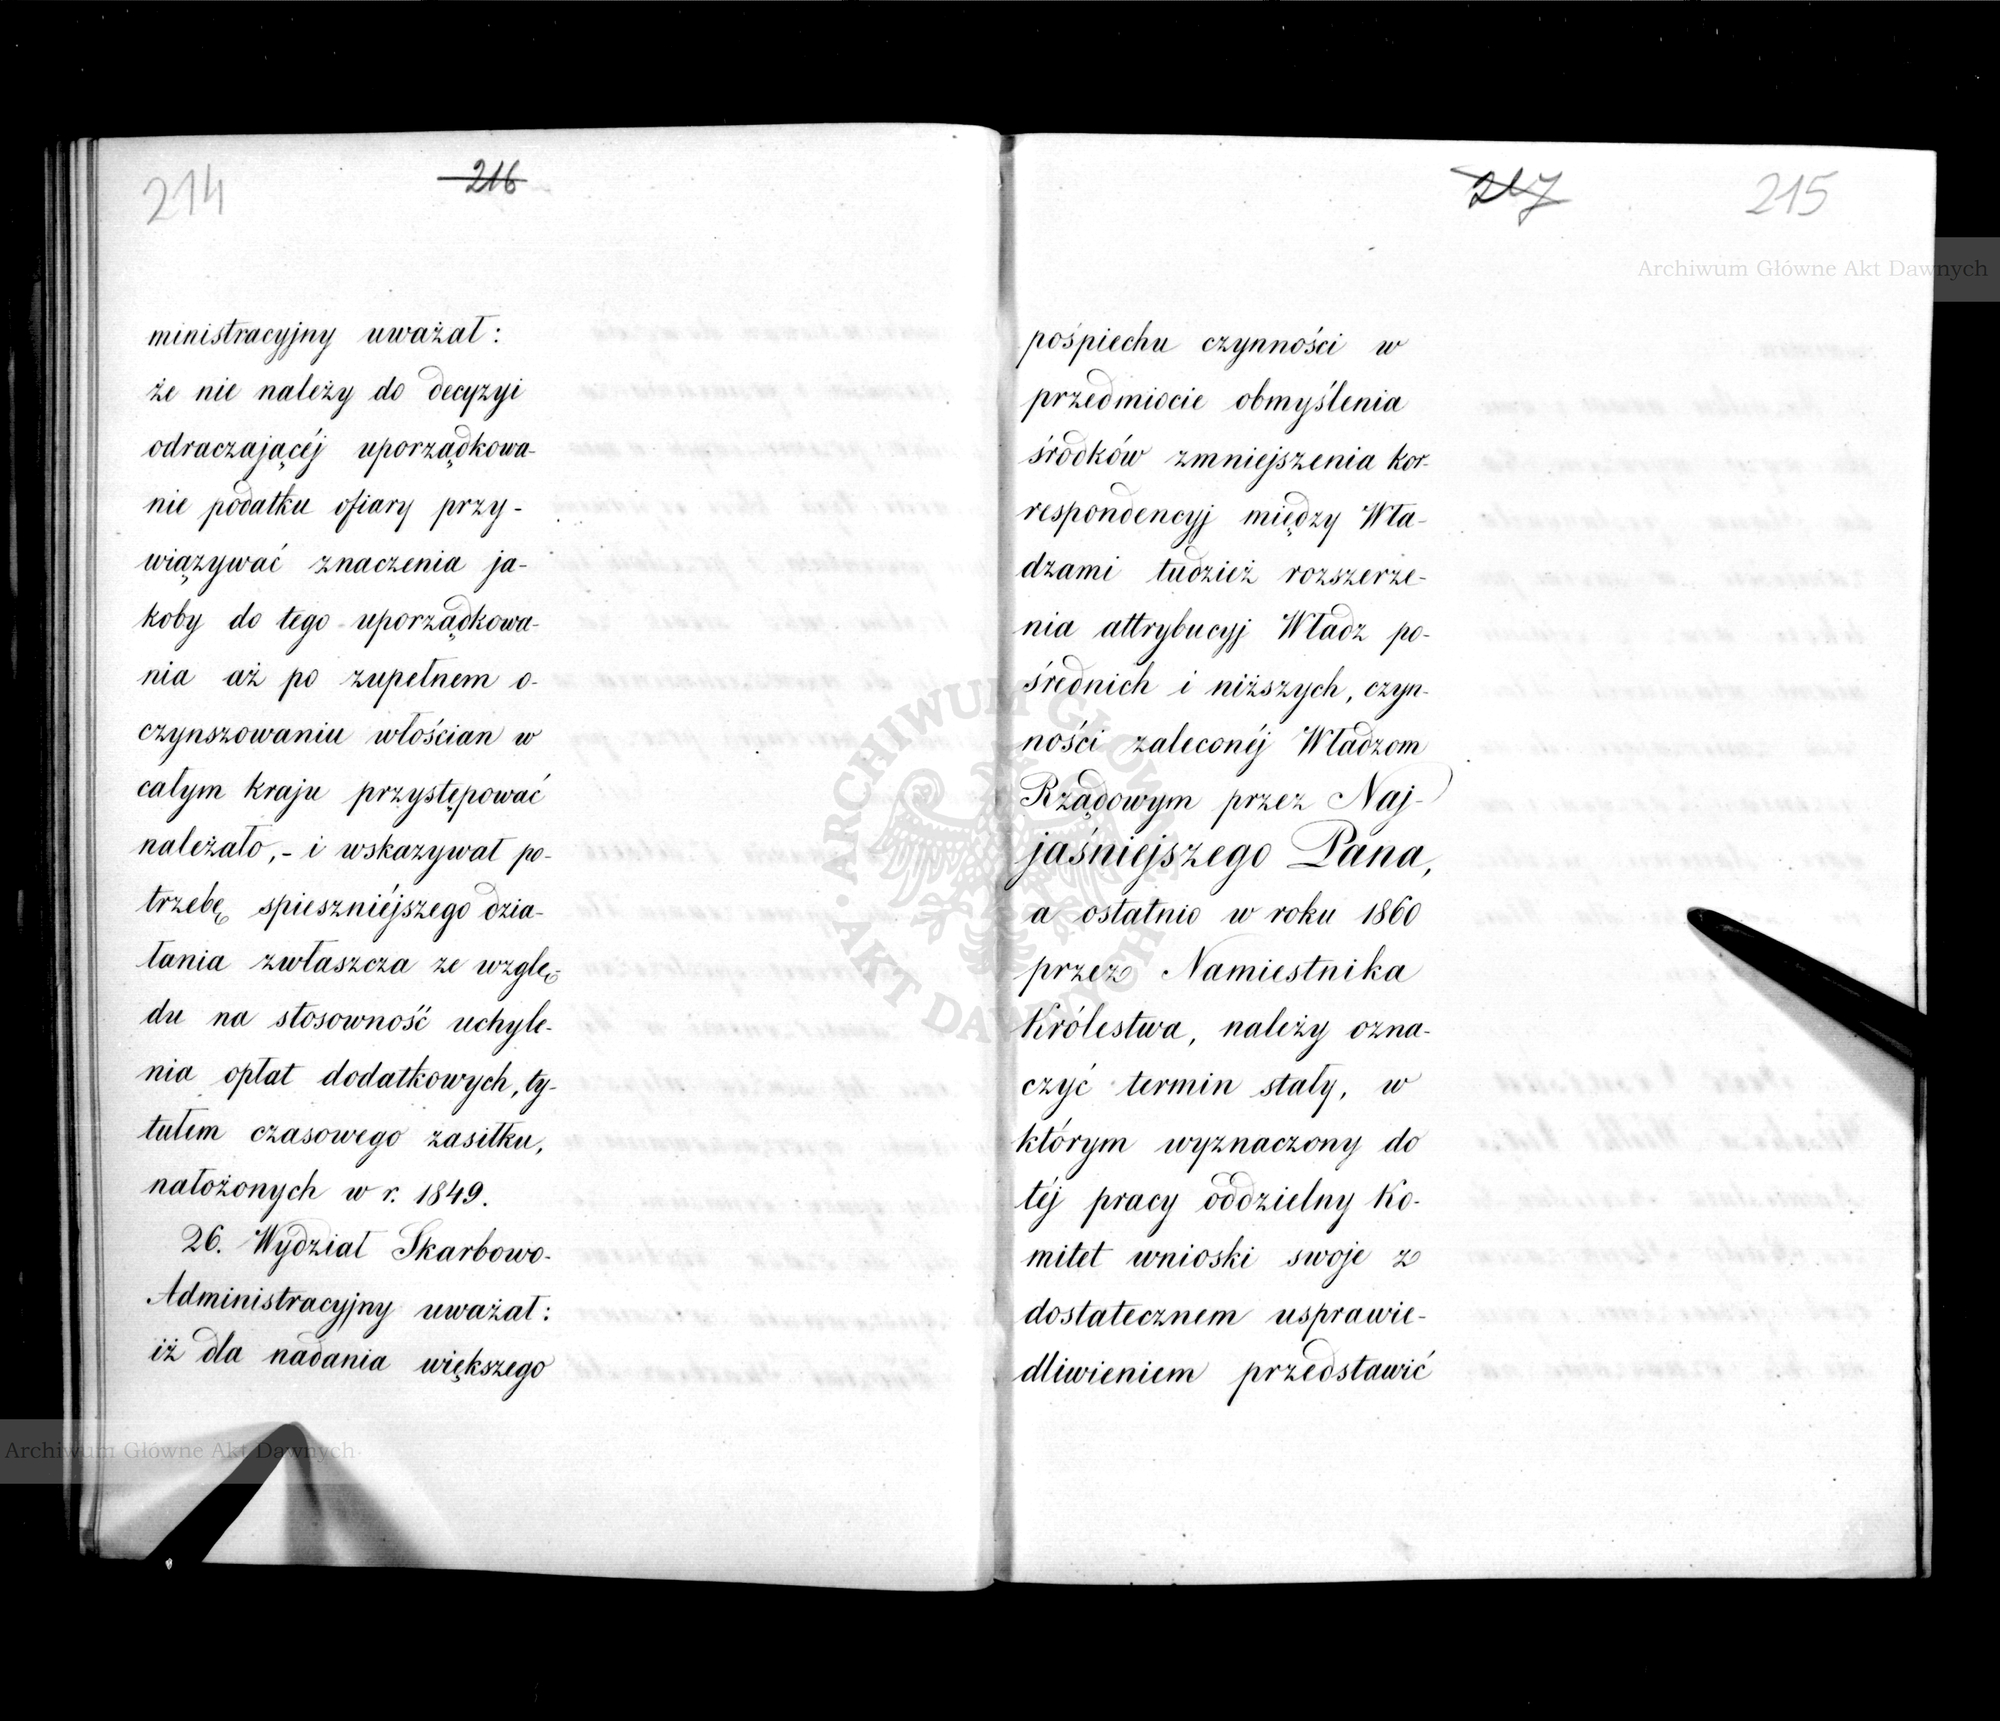 214
216
ministracyjny uważał:
że nie należy do decyzyi
odraczającéj uporządkowa-
nie podatku ofiary przy-
wiązywać znaczenia ja-
koby do tego uporządkowa-
nia aż po zupełnem o-
czynszowaniu włościan w
całym kraju przystępować
należało,- i wskazywał po-
trzebę spieszniéjszego dzia-
łania zwłaszcza ze wzglę-
du na stosowność uchyle-
nia opłat dodatkowych, ty-
tułem czasowego zasiłku,
nałożonych w r. 1849.
26. Wydział Skarbowo-
Administracyjny uważał:
iż dla nadania większego
217
215
pośpiechu czynności w
przedmiocie obmyślenia
środków zmniejszenia kor-
respondencyj między Wła-
dzami tudzież rozszerze-
nia attrybucyj Władz po-
średnich i niższych, czyn-
ności zaleconéj Władzom
Rządowym przez Naj-
jaśniejszego Pana,
a ostatnio w roku 1860
przez Namiestnika
Królestwa, należy ozna-
czyć termin stały, w
którym wyznaczony do
téj pracy oddzielny Ko-
mitet wnioski swoje z
dostatecznem usprawie-
dliwieniem przedstawić
Archiwum Główne Akt Dawnych
Archiwum Główne Akt Dawnych
ARCHIWUM GŁÓWNE
AKT DAWNYCH